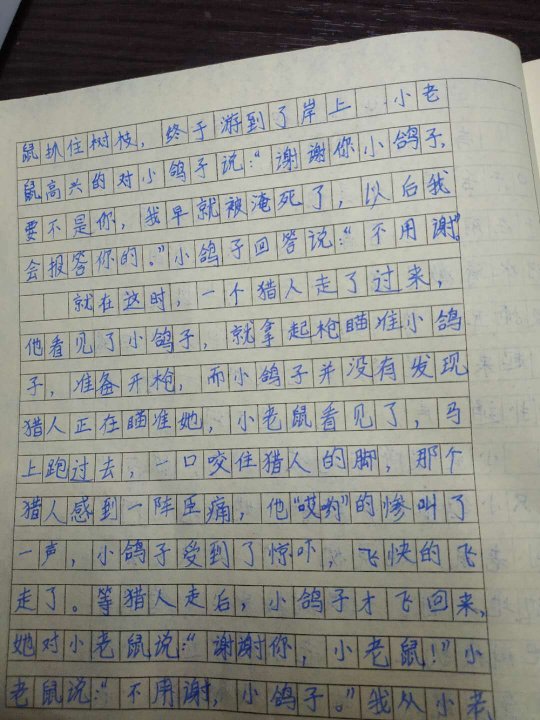 鼠抓住树枝，终于游到了岸上 小老
鼠高兴的对小鸽子说：“谢谢你小鸽子，
要不是你，我早就被淹死了，以后我
会报答你的。”小鸽子回答说：“不用谢”。
就在这时，一个猎人走了过来，
他看见了小鸽子，就拿起枪瞄准小鸽
子，准备开枪，而小鸽子并没有发现
猎人正在瞄准她，小老鼠看见了，马
上跑过去，一口咬住猎人的脚，那个
猎人感到一阵巨痛，他“哎哟”的惨叫了
一声，小鸽子受到了惊吓，飞快的飞
走了。等猎人走后，小鸽子才飞回来，
她对小老鼠说：“谢谢你，小老鼠！”小
老鼠说：“不用谢，小鸽子。”我从小老